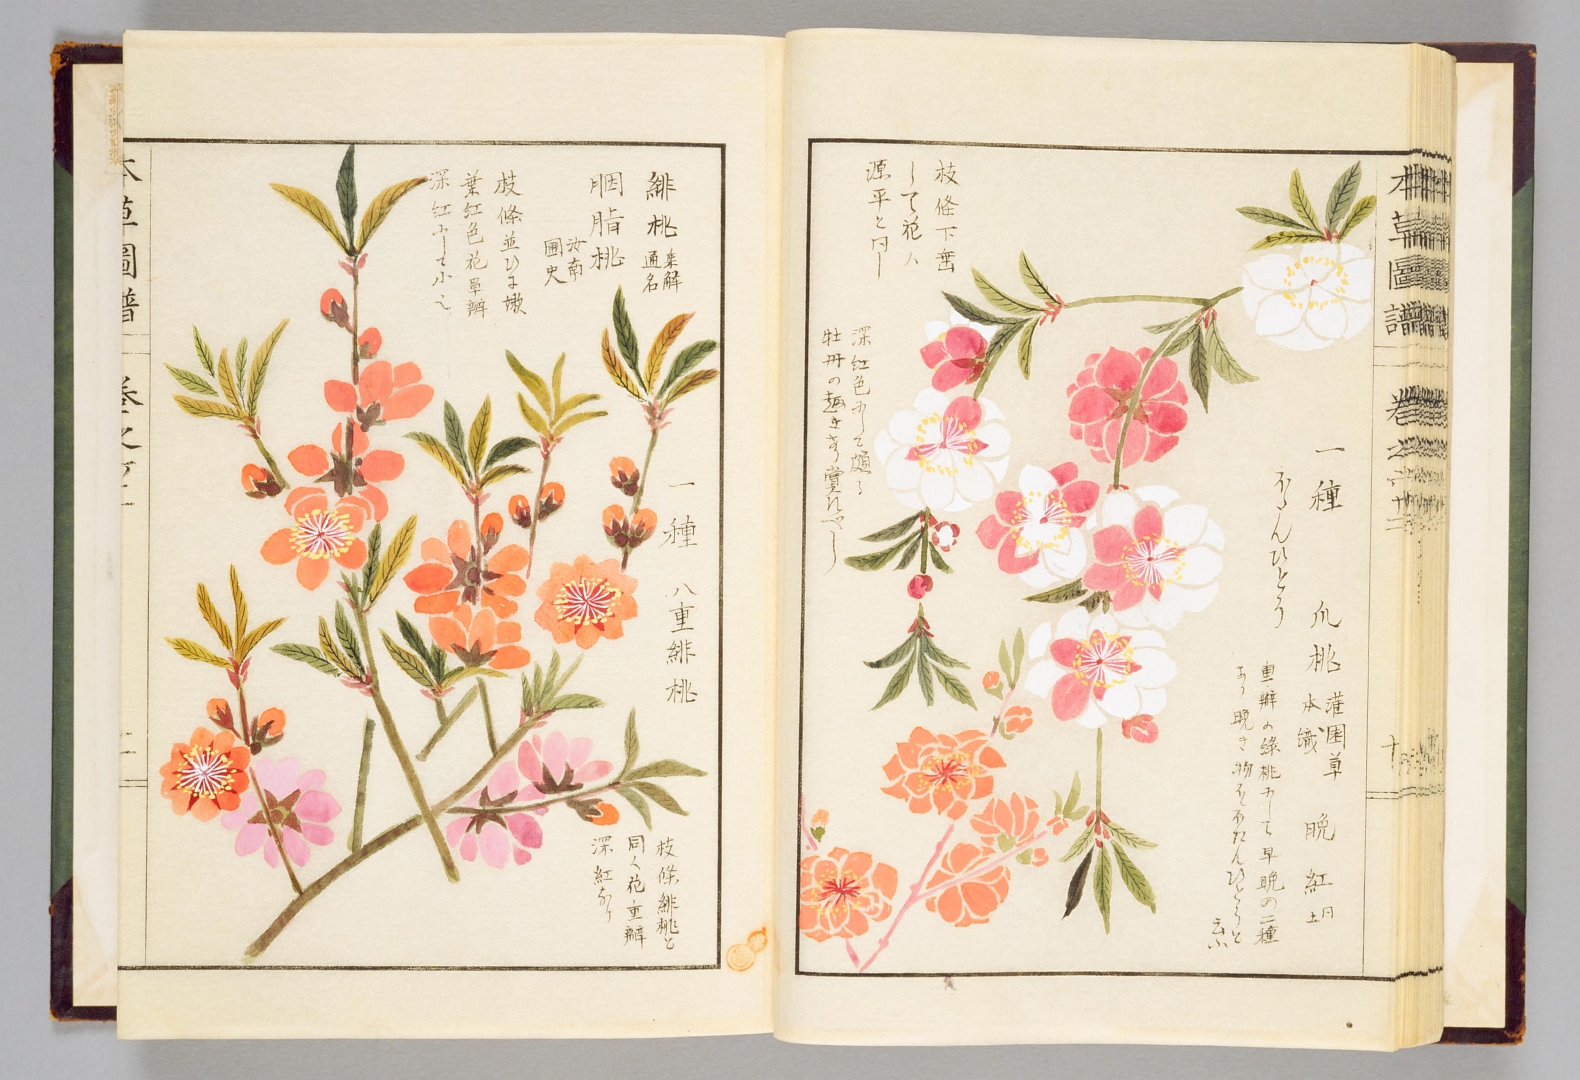 本草圖譜 卷之六十二
一種
ほたんひとう
爪桃 灌園草
本識
晩紅 同上
重瓣の緋桃にして早晩の二種
あり晩き物をほたんひとうと
云ふ
枝條下垂
して花ハ
源平と同し
深紅色にして頗る
牡丹の趣きあり賞すへし
緋桃 桒解
通名
胭脂桃 汝南
圃史
枝條並ひに嫩
葉紅色花單瓣
深紅にして小也
一種 八重緋桃
枝條緋桃と
同く花重瓣
深紅なり
本草圖譜